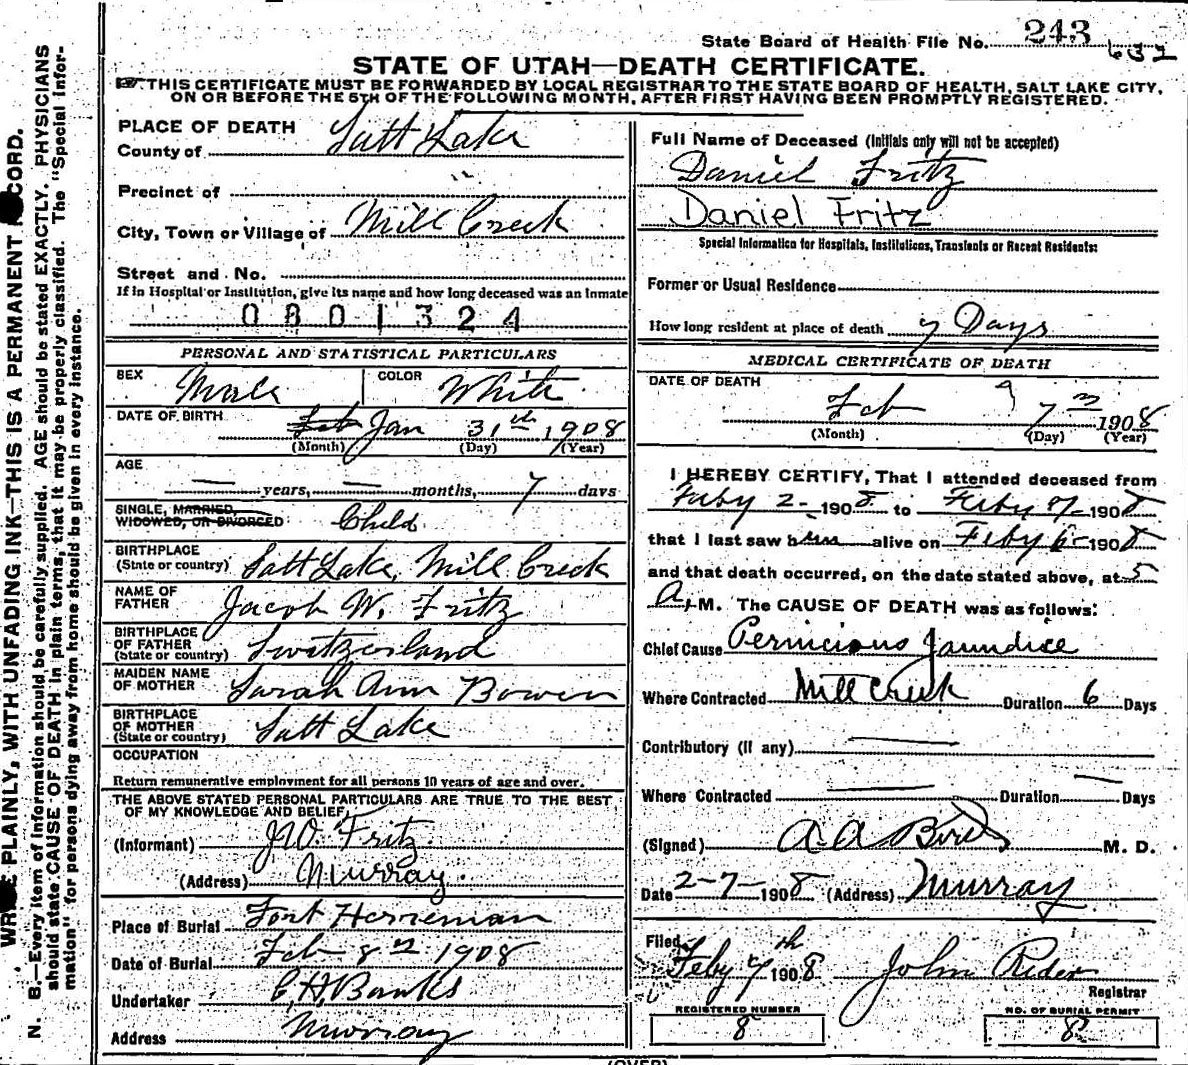 State Board of Health File No. 243
632
STATE OF UTAH—DEATH CERTIFICATE.
THIS CERTIFICATE MUST BE FORWARDED BY LOCAL REGISTRAR TO THE STATE BOARD OF HEALTH, SALT LAKE CITY,
ON OR BEFORE THE 5TH OF THE FOLLOWING MONTH, AFTER FIRST HAVING BEEN PROMPTLY REGISTERED.
PLACE OF DEATH
County of Salt Lake
Precinct of "
City, Town or Village of Mill Creek
Street and No.
If in Hospital or Institution, give its name and how long deceased was an inmate
0801324
PERSONAL AND STATISTICAL PARTICULARS
SEX Male COLOR White
DATE OF BIRTH Feb Jan 31th 1908
(Month) (Day) (Year)
AGE
— years, — months, 7 days
SINGLE, MARRIED,
WIDOWED, OR DIVORCED Child
BIRTHPLACE
(State or country) Salt Lake, Mill Creek
NAME OF
FATHER Jacob W. Fritz
BIRTHPLACE
OF FATHER
(State or country) Switzerland
MAIDEN NAME
OF MOTHER Sarah Ann Bowen
BIRTHPLACE
OF MOTHER
(State or country) Salt Lake
OCCUPATION
Return remunerative employment for all persons 10 years of age and over.
THE ABOVE STATED PERSONAL PARTICULARS ARE TRUE TO THE BEST
OF MY KNOWLEDGE AND BELIEF,
(Informant) J.W. Fritz
(Address) Murray.
Place of Burial Fort Herreman
Date of Burial Feb 8 1908
Undertaker C.H. Banks
Address Murray
Full Name of Deceased (Initials only will not be accepted)
Daniel Fritz
Daniel Fritz
Special Information for Hospitals, Institutions, Transients or Recent Residents:
Former or Usual Residence
How long resident at place of death 7 Days
MEDICAL CERTIFICATE OF DEATH
DATE OF DEATH
Feb 7 1908
(Month) (Day) (Year)
I HEREBY CERTIFY, That I attended deceased from
Feby 2 – 1908 to Feby 7 – 1908
that I last saw him alive on Feby 6 – 1908
and that death occurred, on the date stated above, at 5
A. M. The CAUSE OF DEATH was as follows:
Chief Cause Pernicious Jaundice
Where Contracted Mill Creek Duration 6 Days
Contributory (if any) —
Where Contracted — Duration — Days
(Signed) A. A. Bird M. D.
Date 2-7-1908 (Address) Murray
Filed
Feby 7th 1908 John Rider
Registrar
REGISTERED NUMBER
8
NO. OF BURIAL PERMIT
8
(OVER)
PLAINLY, WITH UNFADING INK—THIS IS A PERMANENT RECORD.
N. B.—Every item of information should be carefully supplied. AGE should be stated EXACTLY. PHYSICIANS
should state CAUSE OF DEATH in plain terms, that it may be properly classified. The "Special Infor-
mation" for persons dying away from home should be given in every instance.